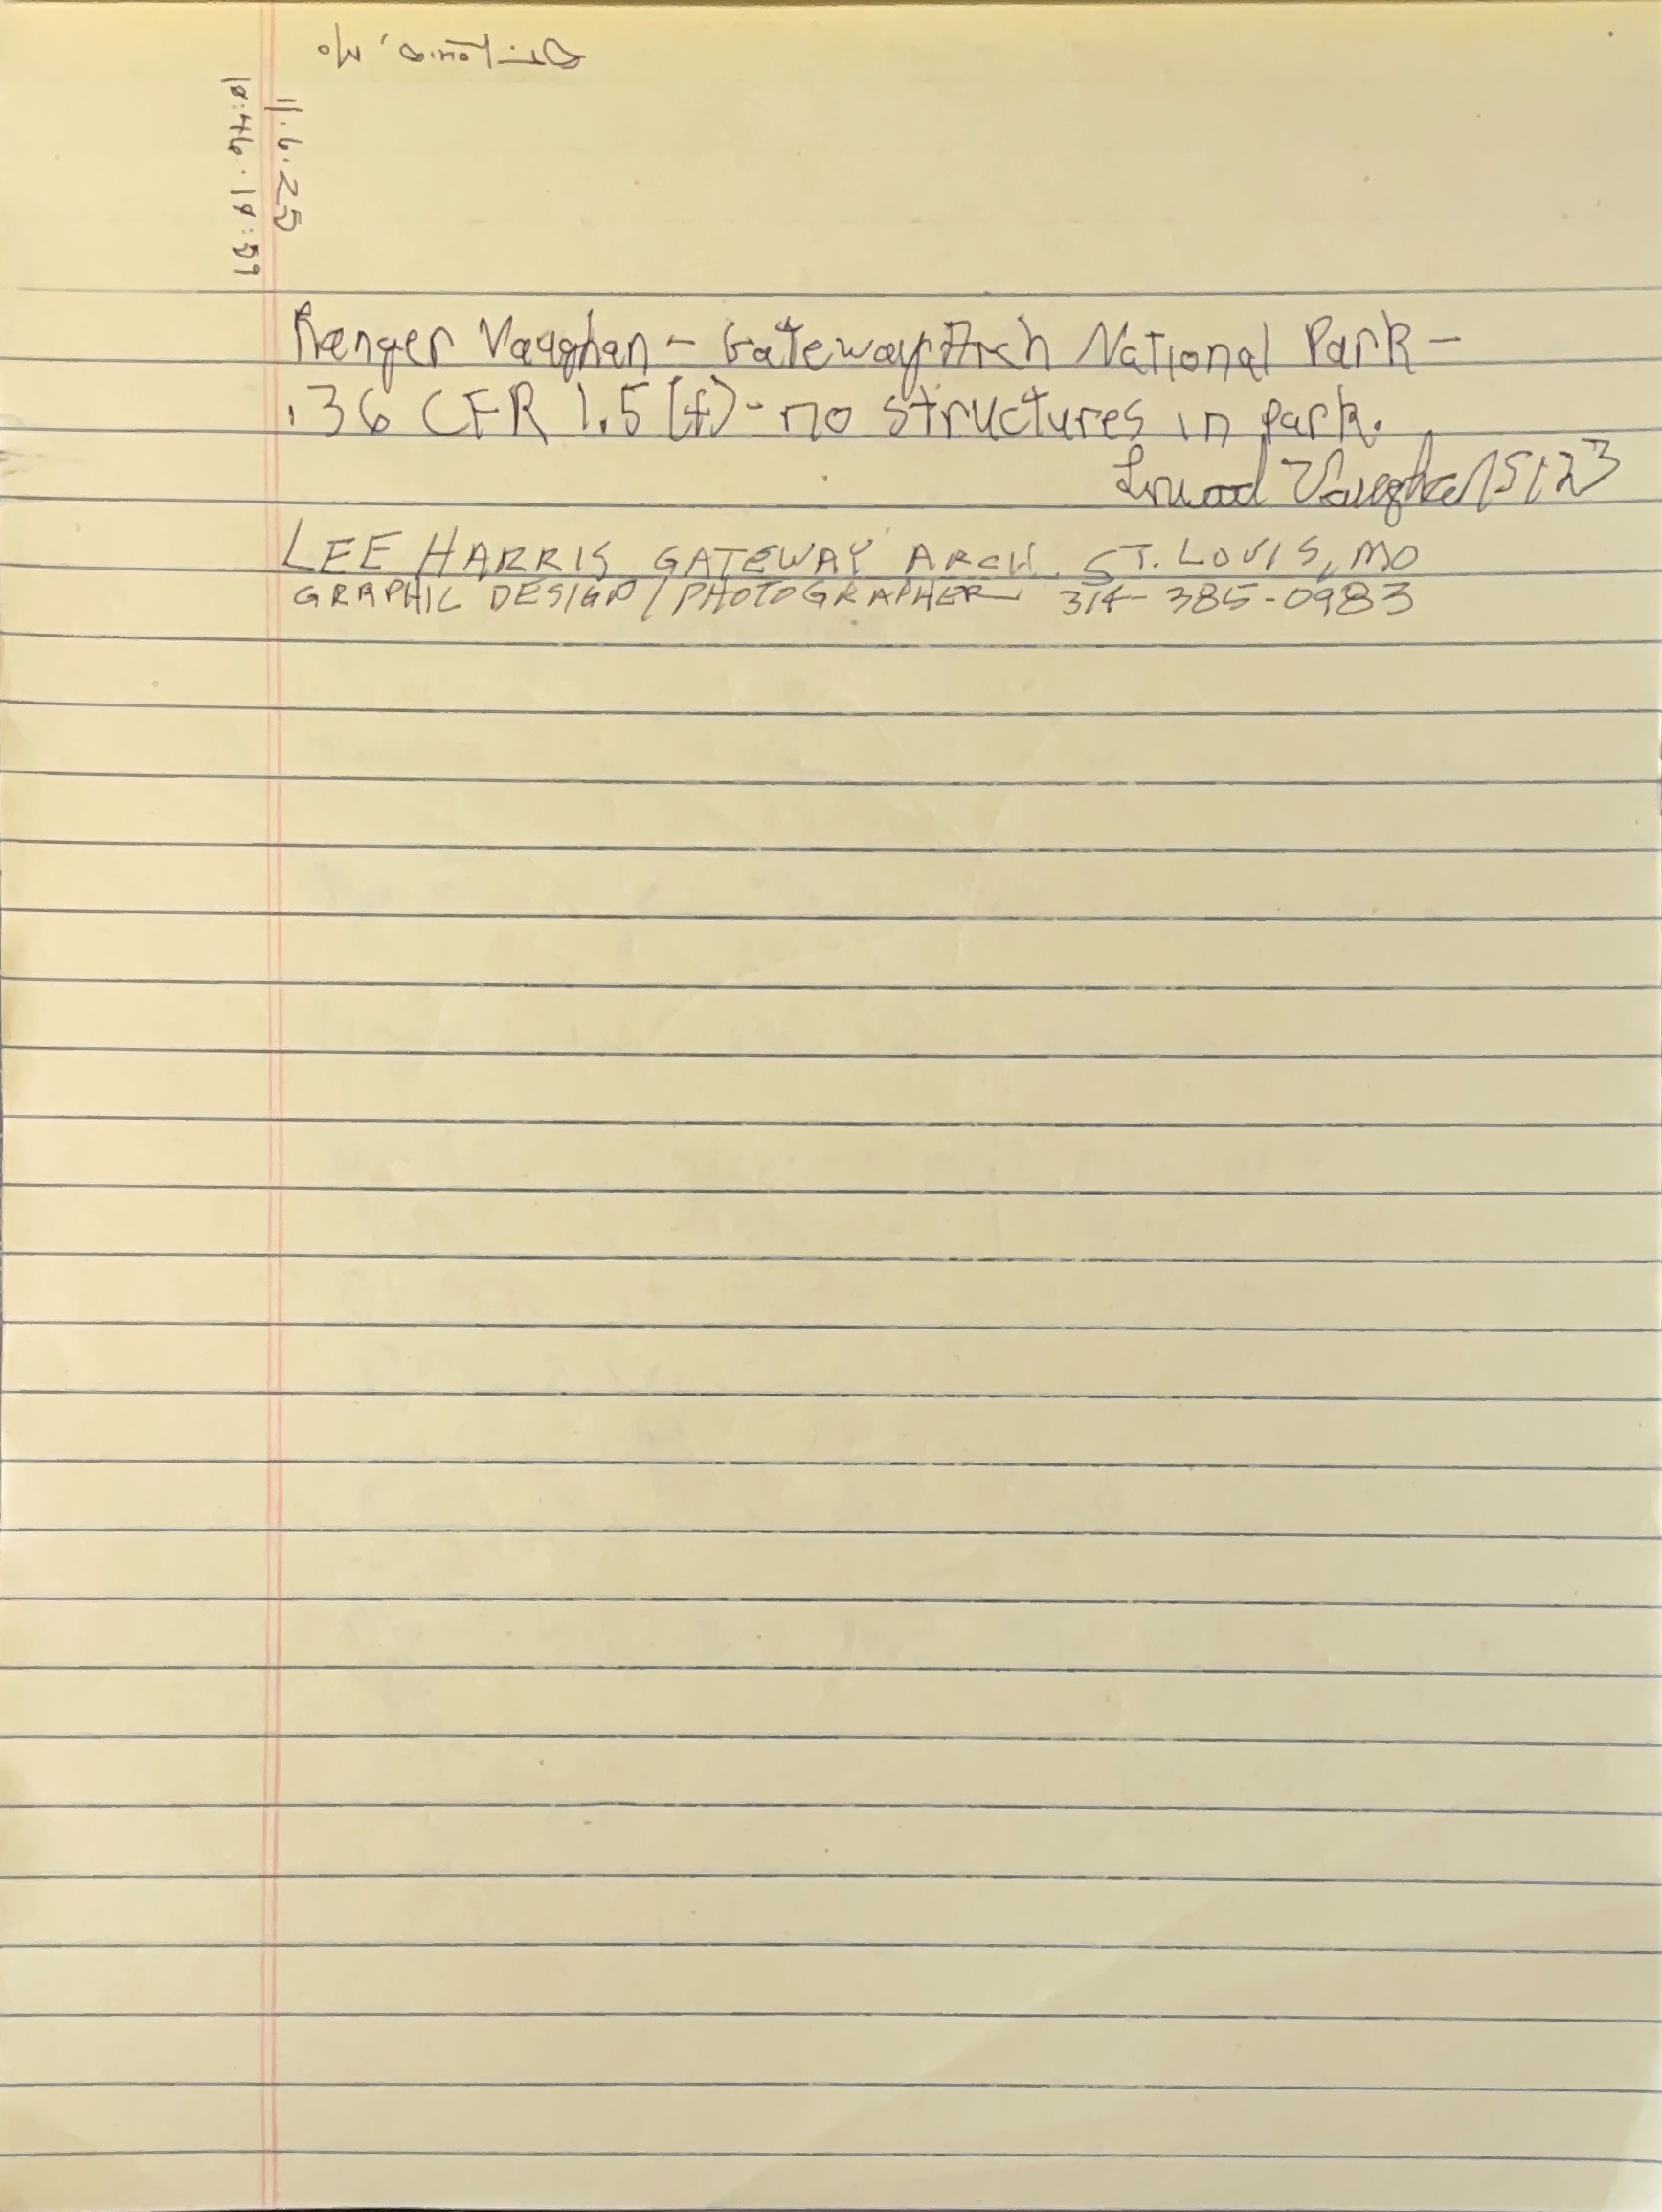 St. Louis, Mo
11.6.25
10:46 - 10:59
Ranger Vaughan - Gateway Arch National Park -
.36 CFR 1.5 (f) - no structures in park.
Vaughan
LEE HARRIS GATEWAY ARCH. ST. LOUIS, MO
GRAPHIC DESIGN / PHOTOGRAPHER 314-385-0983